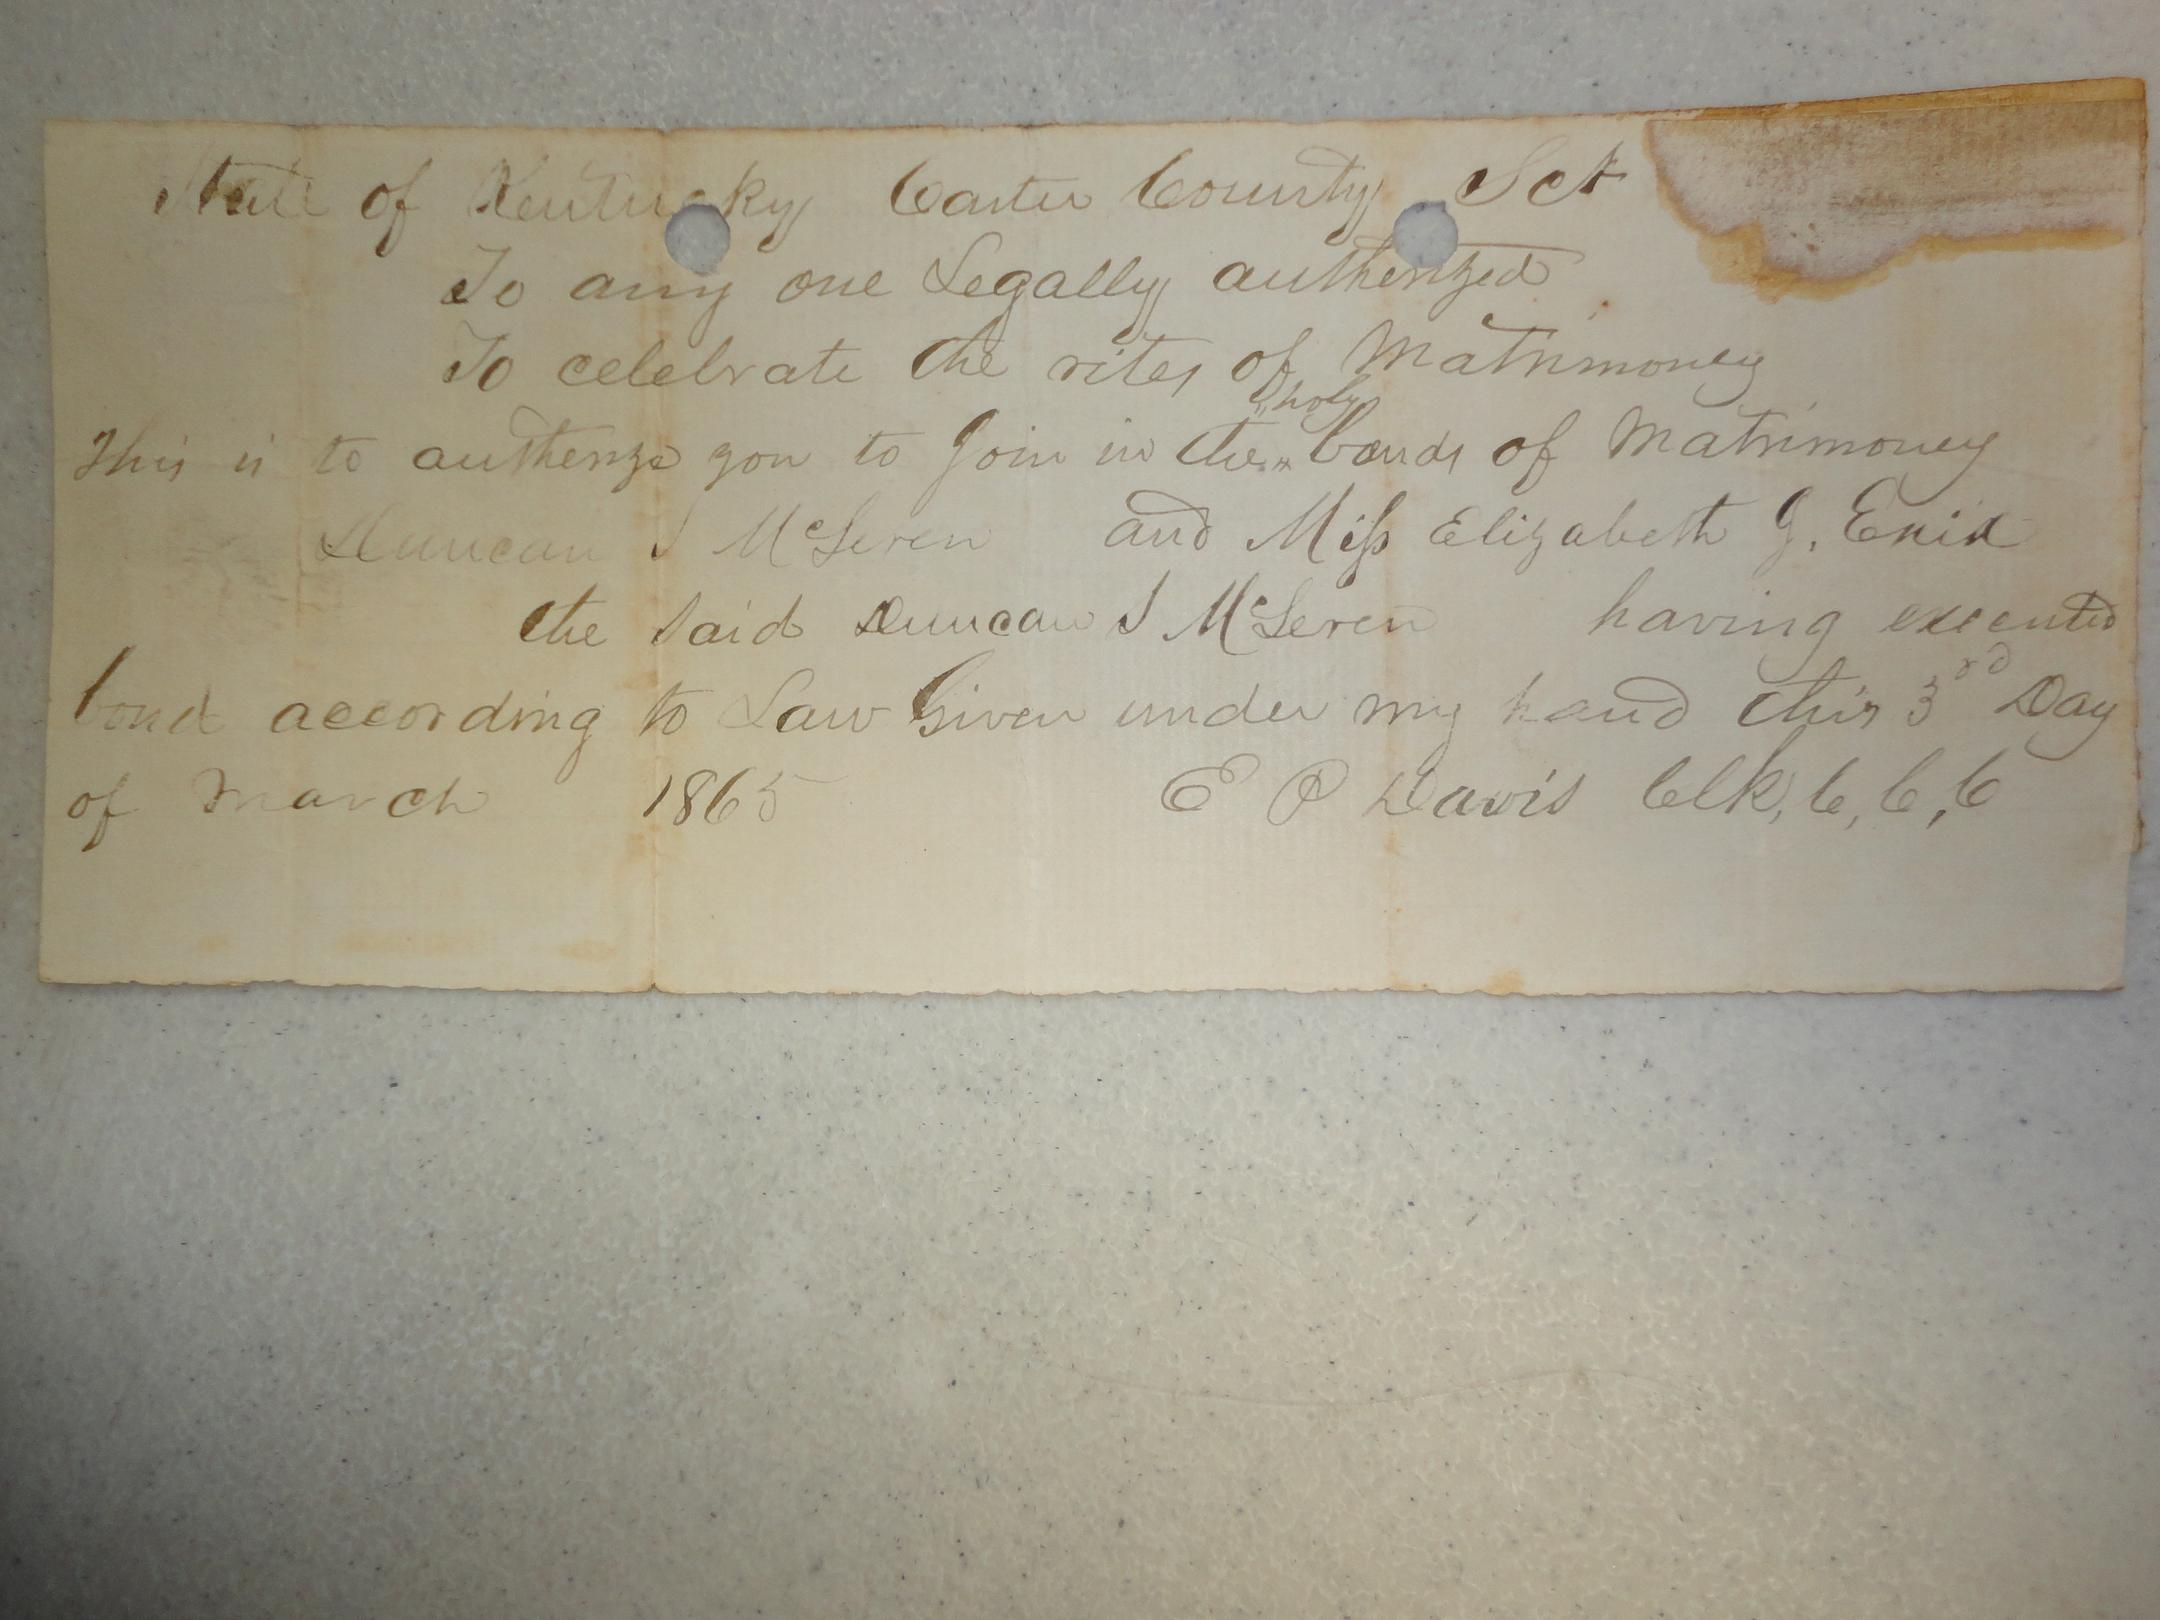 State of Kentucky Carter County Sct
To any one Legally autherized
To celebrate the rites of Matrimoney
This is to autherize you to Join in the holy bonds of Matrimoney
Duncan S McSeren and Miss Elizabeth J. Enix
the said Duncan S McSeren having executed
bond according to Law Given under my hand this 3rd Day
of March 1865 E P Davis Clk, C, C, C